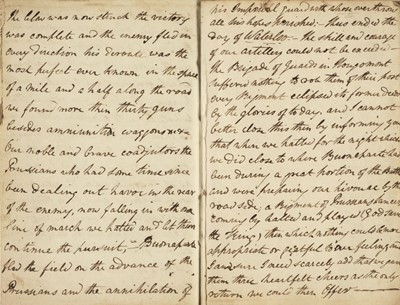 the blow was now struck the victory
was complete and the enemy fled in
every direction his deroute was the
most perfect ever known in the space
of a mile and a half along the road
we found more than thirty guns
besides ammunition waggons &c &c
our noble and brave coadjutors the
Prussians who had some time since
been dealing out havoc in the rear
of the enemy, now falling in with our
line of march we halted and let them
continue the pursuit. — Buonaparte
fled the field on the advance of the
Prussians and the annihilation of
his Imperial guard with whose overthrow
all his hopes perished. — thus ended the
day of Waterloo — the skill and courage
of our artillery could not be exceeded —
the Brigade of Guards in Hougomont
suffered nothing to rob them of their post
every Regiment eclipsed its former deeds
by the glories of to day. and I cannot
better close this then by informing you
that when we halted for the night which
we did close to where Buonaparte had
been during a great portion of the Battle
and were preparing our bivouac by the
road side, a Regiment of Prussian lancers
coming by halted and played (God save
the King) then which nothing could be more
appropriate or grateful to our feelings and
I am sure I need scarcely add that we gave
them three heartfelt cheers as the only
return we could then offer —